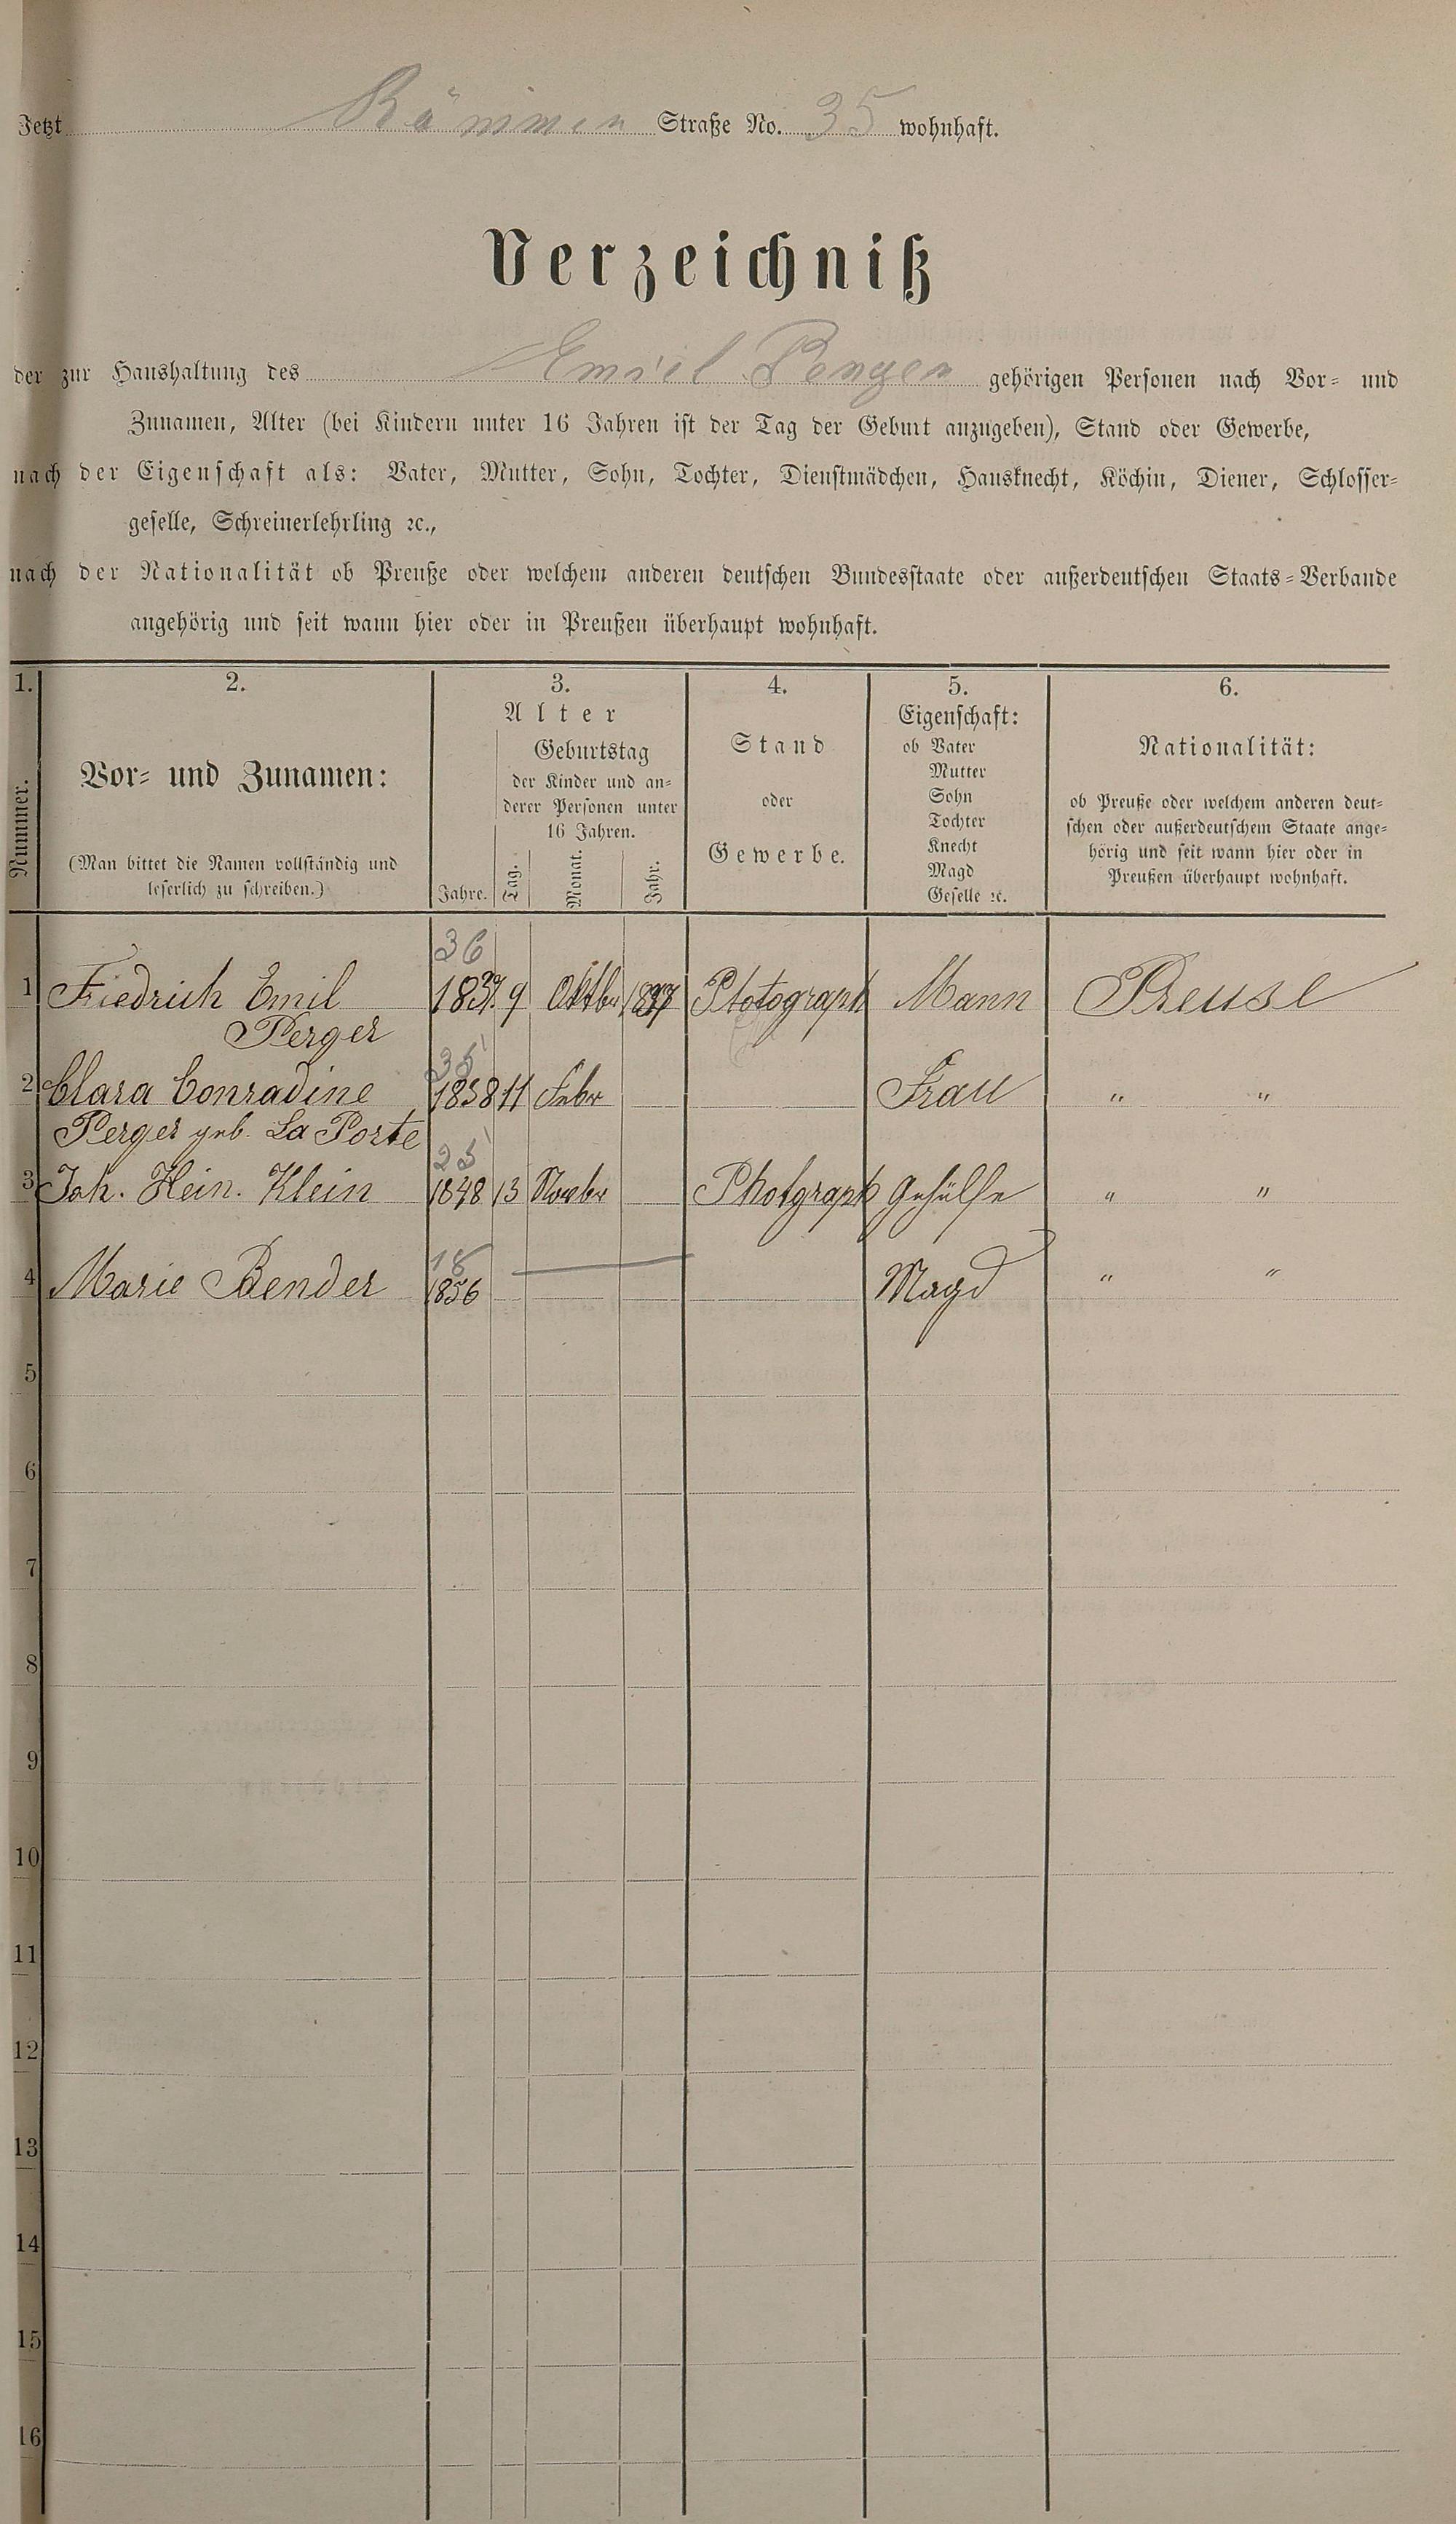 Jetzt Straße No. 35 wohnhaft.
Verzeichniß
der zur Haushaltung des Emiel gehörigen Personen nach Vor- und
Zunamen, Alter (bei Kindern unter 16 Jahren ist der Tag der Geburt anzugeben), Stand oder Gewerbe,
nach der Eigenschaft als: Vater, Mutter, Sohn, Tochter, Dienstmädchen, Hausknecht, Köchin, Diener, Schlosser-
geselle, Schreinerlehrling ꝛc.,
nach der Nationalität ob Preuße oder welchem anderen deutschen Bundesstaate oder außerdeutschen Staats-Verbande
angehörig und seit wann hier oder in Preußen überhaupt wohnhaft.
1. 2. 3. 4. 5. 6.
Nummer.
Vor- und Zunamen:
(Man bittet die Namen vollständig und
leserlich zu schreiben.)
Alter
Geburtstag
der Kinder und an-
derer Personen unter
16 Jahren.
Jahre. Tag. Monat. Jahr.
Stand
oder
Gewerbe.
Eigenschaft:
ob Vater
Mutter
Sohn
Tochter
Knecht
Magd
Geselle ꝛc.
Nationalität:
ob Preuße oder welchem anderen deut-
schen oder außerdeutschem Staate ange-
hörig und seit wann hier oder in
Preußen überhaupt wohnhaft.
36
1 Friedrich Emil 1837. 9 Oktbr 1837 Photograph Mann Preuse
Perger
35
2 Clara Conradine 1838 11 Febr Frau " "
Perger geb. La Porte
25
3 Joh. Hein. Klein 1848 13 Novbr Photgraph Gehülfe " "
18
4 Marie Bender 1856 Magd " "
5
6
7
8
9
10
11
12
13
14
15
16